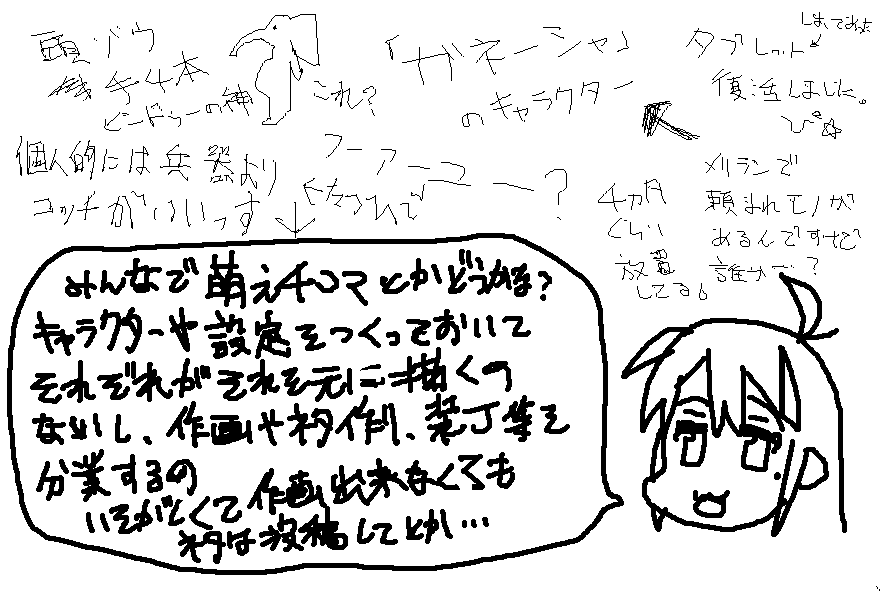 頭ゾウ
手4本
ヒンドゥーの神
これ?
「ガネーシャ」
のキャラクター
タブレット
復活しました。
個人的には兵器より
コッチがいいっす
メリランで
頼まれモノが
あるんですけど
誰か?
4カ月
くらい
放置
してる。
みんなで萌え4コマとかどうかな?
キャラクターや設定をつくっておいて
それぞれがそれを元に描くの
ないし、作画やネタ作り、装丁等を
分業するの
いそがしくて作画出来なくても
ネタは投稿してとか…